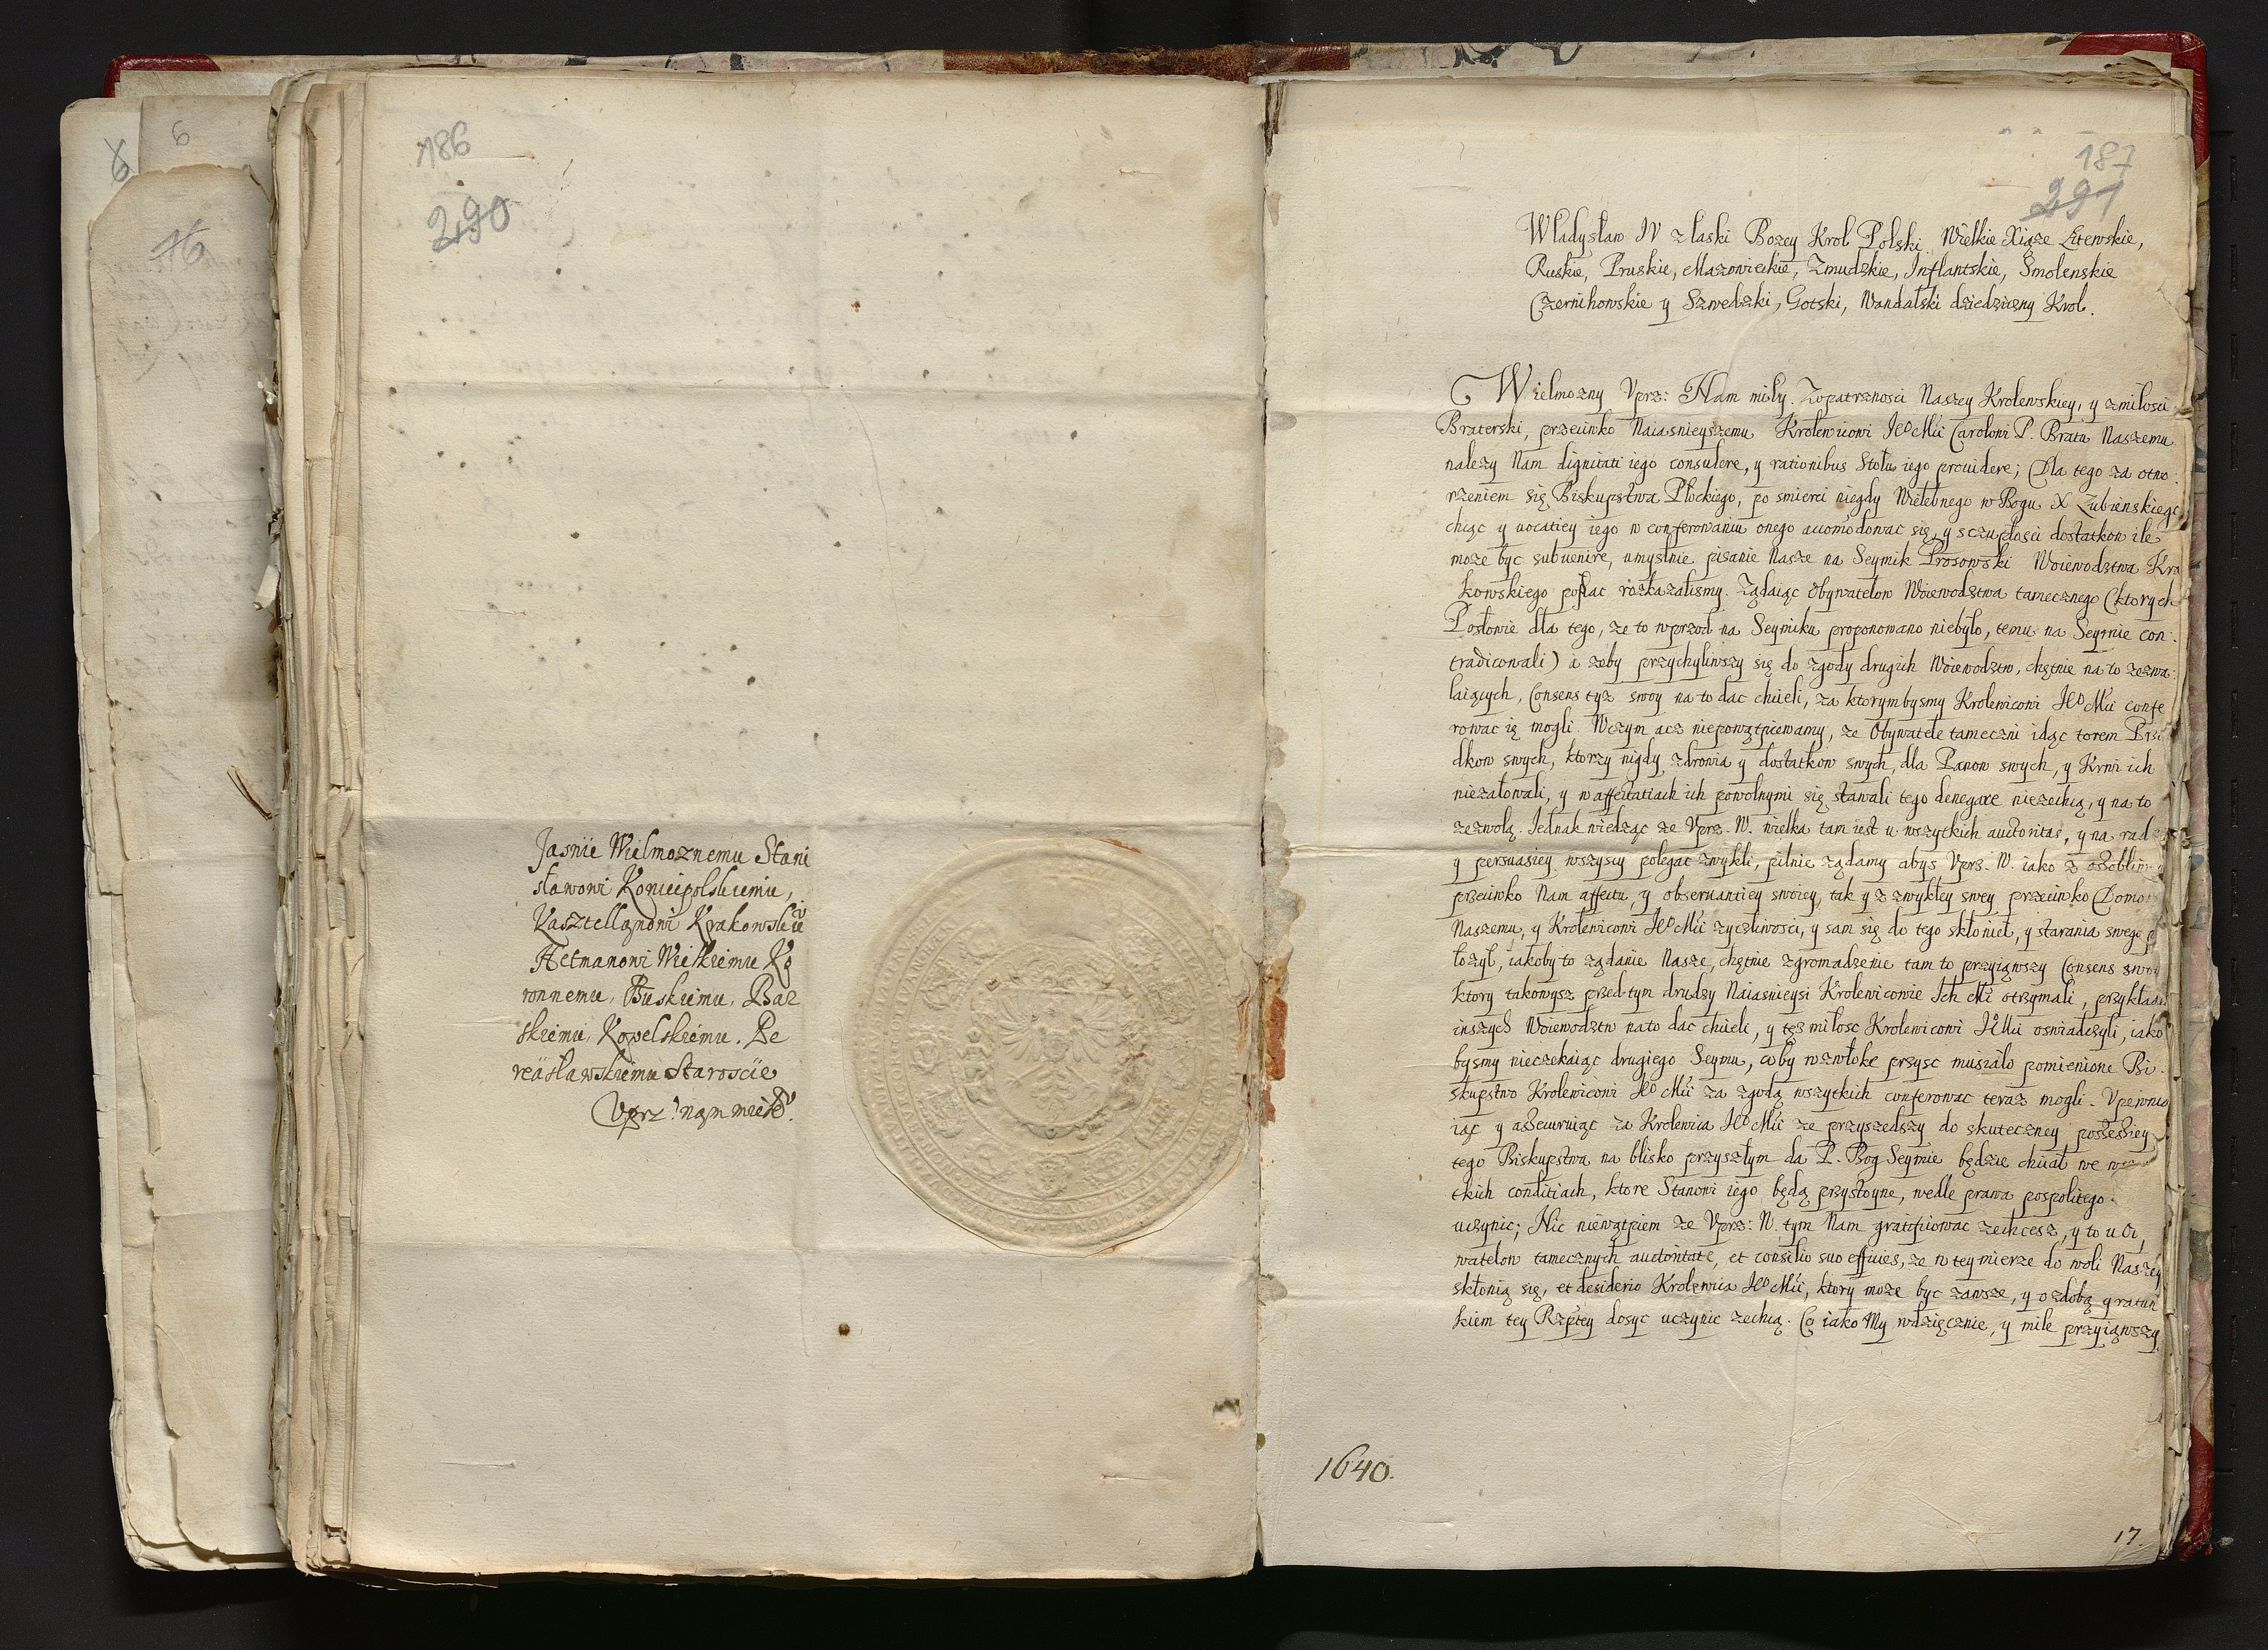 6
6
16
186
290
Jasnie Wielmoznemu Stani
sławowi Koniecpolskiemu,
Kasztellanowi Krakowskie
Hetmanowi Wielkiemu Ko
ronnemu, Buskiemu, Bar
skiemu, Kowelskiemu, Pe
reasławskiemu Staroscie
Vprz: nam
187
291
Władysław IV z łaski Bozey Krol Polski Wielkie Xiąze Litewskie,
Ruskie, Pruskie, Mazowieckie, Zmudzkie, Inflantskie, Smolenskie
Czernihowskie y Szwedzki, Gotski, Wandalski dziedziczny Krol.
Wielmozny Vprz: Nam miły. Z opatrznosci Naszey Krolewskiey, y z miłosci
Braterski, przeciwko Naiasnieyszemu Krolewicowi Jeo Mci Carolowi P. Bratu Naszemu
nalezy Nam dignitati iego consulere, y rationibus Stołu iego prouidere; Dla tego za otwo
rzeniem się Biskupstwa Płockiego, po smierci niegdy Wielebnego w Bogu X Łubienskiego
chcąc y uocatiey iego w conferowaniu onego accomodowac się, y sczupłosci dostatkow ile
moze byc subuenire, umyslnie pisanie Nasze na Seymik Prosowski Woiewodztwa Kra
kowskiego posłac roskazalismy. Ządaiąc Obywatelow Woiewodztwa tamecznego (ktorych
Posłowie dla tego, ze to wprzod na Seymiku proponowano niebyło, temu na Seymie con
tradicowali) a zeby przychyliwszy się do zgody drugich Woiewodztw, chętnie na to zezwa
laiących, Consens tyz swoy na to dac chcieli, za ktorymbysmy Krolewicowi Jeo Mci confe
rowac ię mogli. W czym acz niepowątpiewamy, ze Obywatele tameczni idąc torem Prze
dkow swych, ktorzy nigdy zdrowia y dostatkow swych, dla Panow swych, y Krwi ich
niezałowali, y w affectatiach ich powolnymi się stawali tego denegare niezechcą, y na to
zezwolą. Jednak wiedząc ze Vprz. W. wielka tam iest u wszytkich auctoritas, y na radzie
y persuasiey wszyscy polegac zwykli, pilnie ządamy abys Vprz. W. iako z osobliwego
przeciwko Nam affectu, y obseruantiey swoiey, tak y z zwykłey swey przeciwko Domowi
Naszemu, y Krolewicowi Jeo Mci zyczliwosci, y sam się do tego skłonieł, y starania swego
łozył, iakoby to ządanie Nasze, chętnie zgromadzenie tam to przyiąwszy Consens swoy
ktory takowysz przed tym drudzy Naiasnieysi Krolewicowie Ich Mci otrzymali, przykładem
inszych Woiewodztw na to dac chcieli, y tęz miłosc Krolewicowi Jeo Mci oswiadczyli, iako
bysmy nieczekaiąc drugiego Seymu, coby w zwłoke przysc musiało pomienione Bi
skupstwo Krolewicowi Jeo Mci za zgodą wszytkich conferowac teraz mogli. Vpewnia
iąc y assecuruiąc za Krolewica Jeo Mci ze przyszedszy do skuteczney possessiey
tego Biskupstwa na blisko przyszłym da P. Bog Seymie będzie chciał we wszy
tkich conditiach, ktore Stanowi iego będą przystoyne, wedle prawa pospolitego
uczynic; Nic niewątpiem ze Vprz: W. tym Nam gratificowac zechcesz, y to u Oby
watelow tamecznych auctoritate, et consilio suo efficies, ze w tey mierze do woli Naszey
skłonią się, et desiderio Krolewica Jeo Mci, ktory moze byc zawsze, y ozdobą y ratun
kiem tey Rzptey dosyc uczynic zechcą. Co iako My wdzięcznie, y mile przyiąwszy
1640.
17.